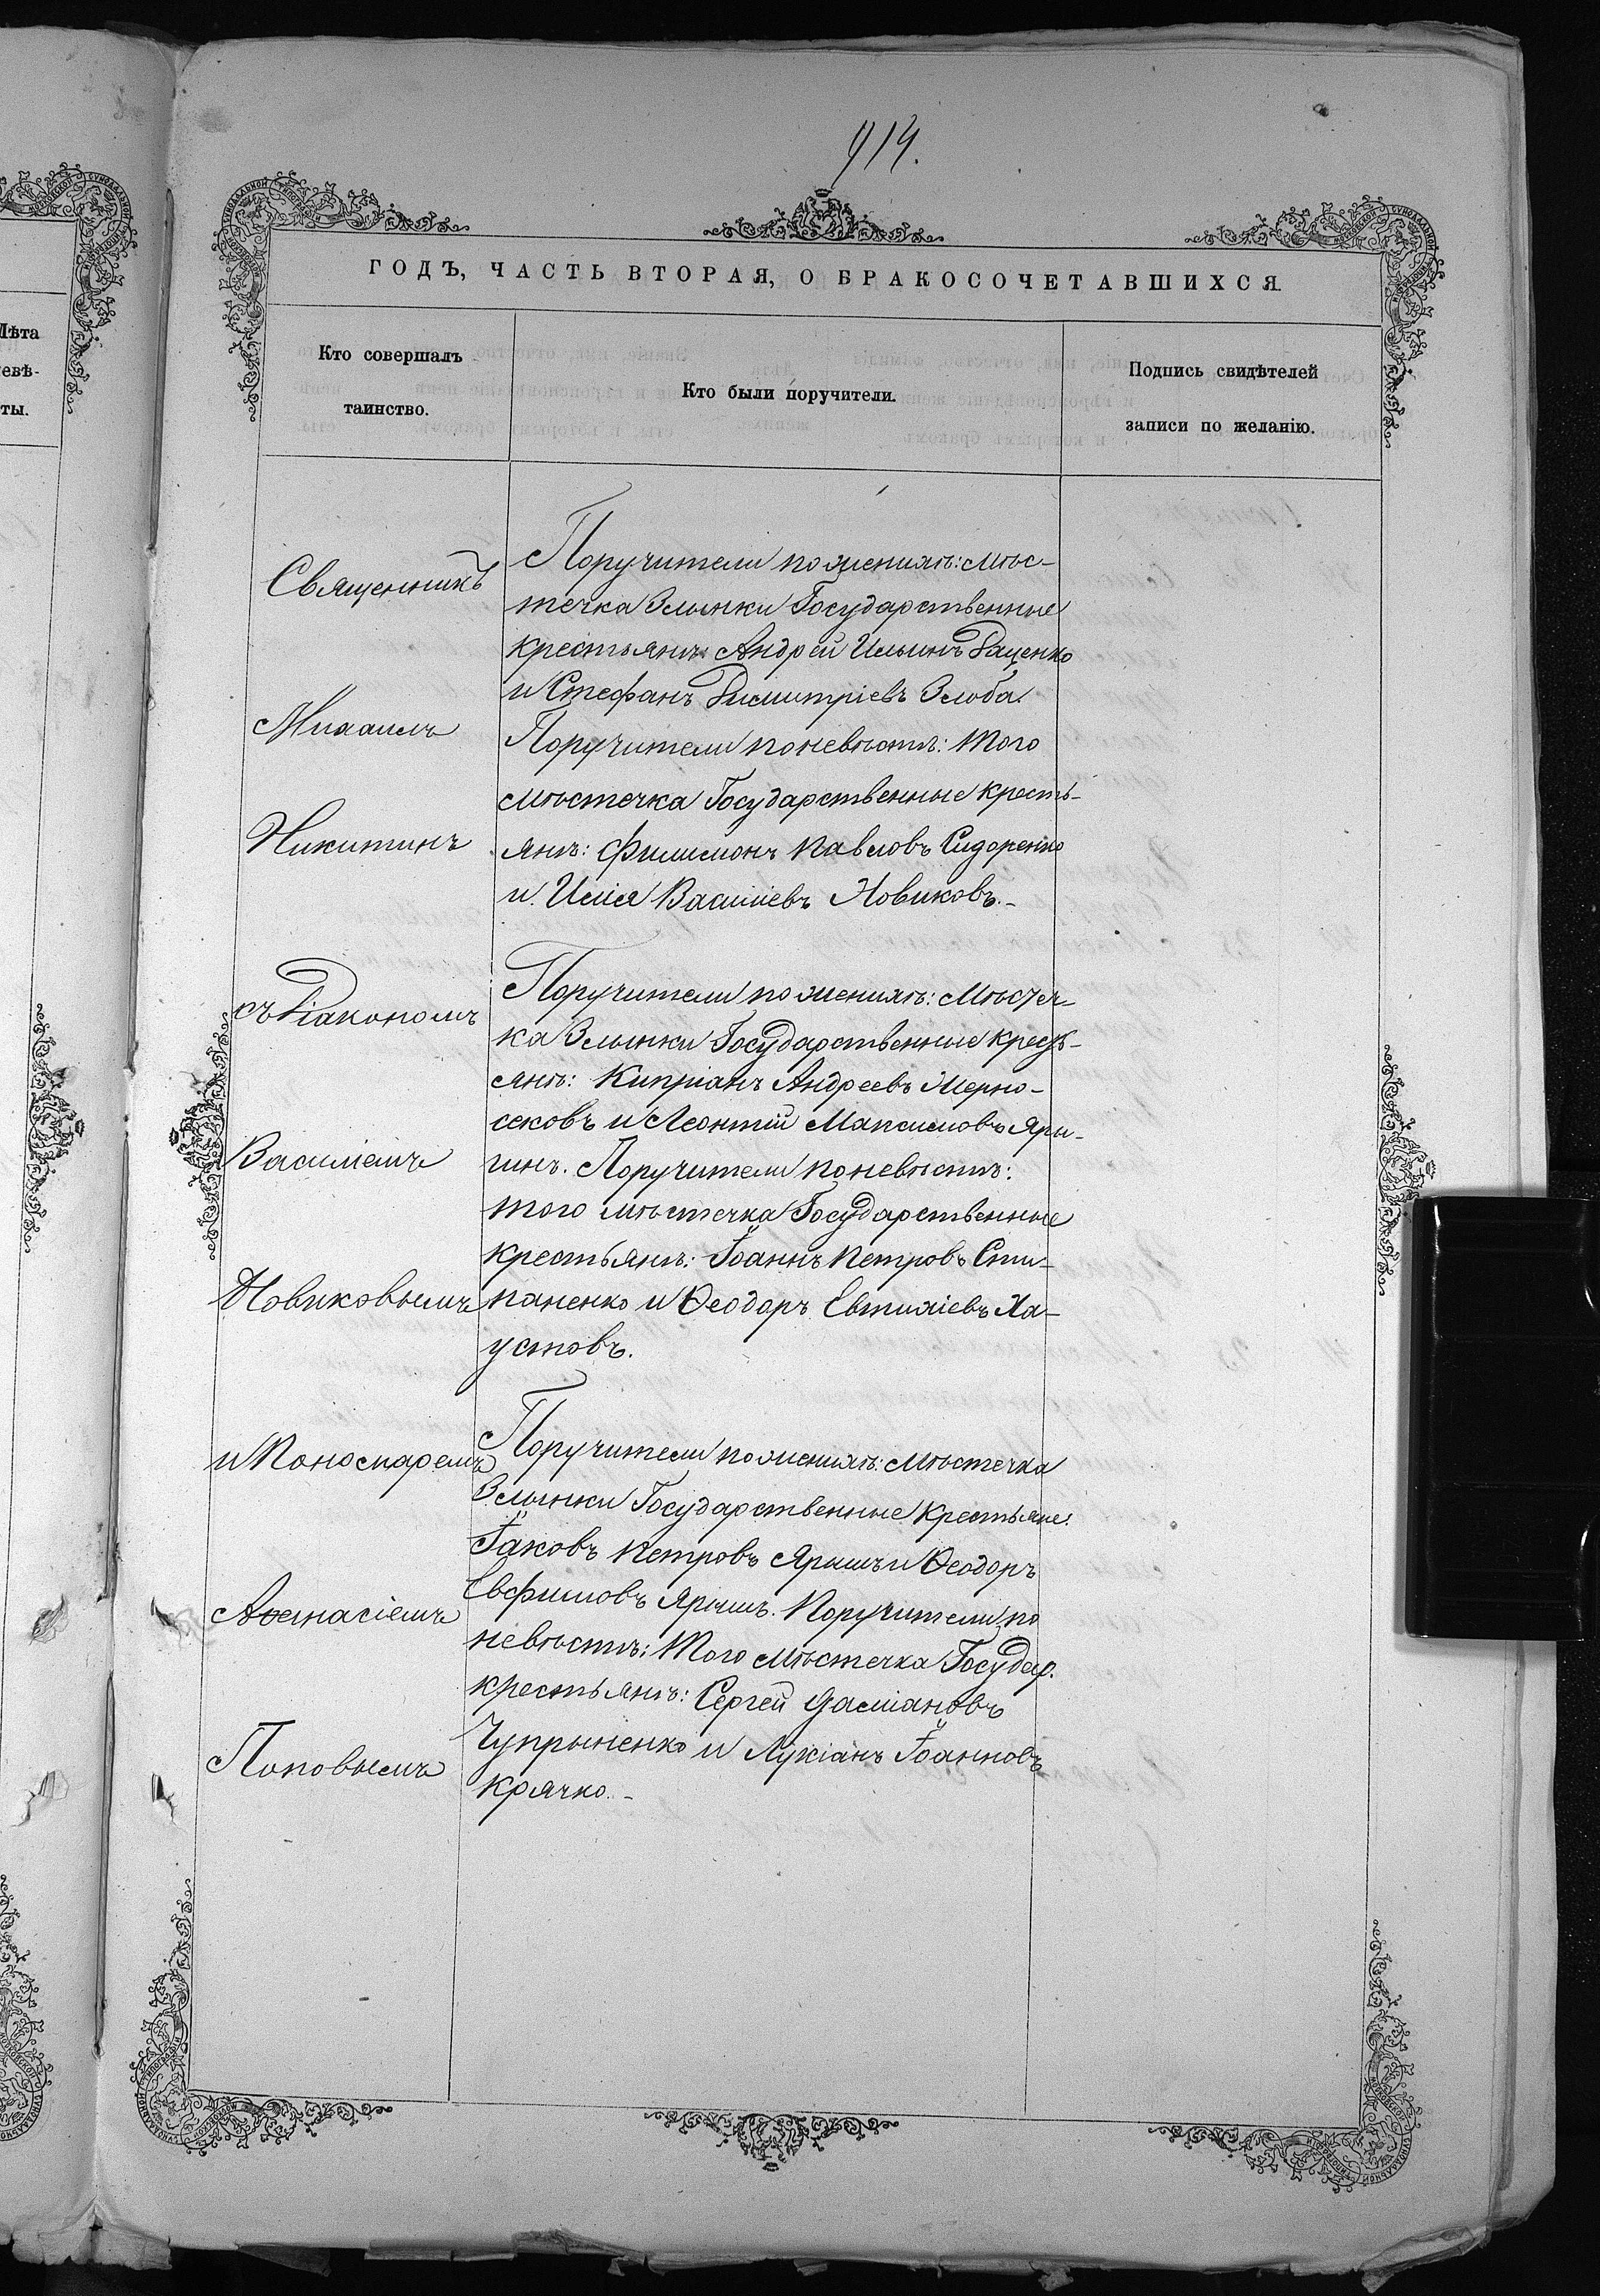 914.
ГОДЪ, ЧАСТЬ ВТОРАЯ, О БРАКОСОЧЕТАВШИХСЯ.
Лѣта
невѣ-
ты.
Кто совершалъ
таинство.
Кто были поручители.
Подпись свидѣтелей
записи по желанію.
Священникъ
Михаилъ
Никитинъ
съ Діакономъ
Василіемъ
Новиковымъ
и Пономаремъ
Аѳанасіемъ
Поповымъ
Поручители по женихѣ: мѣс-
течка Злынки Государственные
крестьяне Андрей Ильинъ Даценко
и Стефанъ Димитріевъ Злоба.
Поручители по невѣстѣ: того
мѣстечка Государственные кресть-
яне: Филимонъ Павловъ Сидоренко
и Илія Василіевъ Новиковъ.-
Поручители по женихѣ: Мѣстеч-
ка Злынки Государственные кресть-
яне: Кипріанъ Андреевъ Черно-
сековъ и Леонтій Максимовъ Яры-
гинъ. Поручители по невѣстѣ:
того мѣстечка Государственные
крестьяне: Іоаннъ Петровъ Сти-
паненко и Ѳеодоръ Евтихіевъ Ха-
устовъ.
Поручители по женихѣ: Мѣстечка
Злынки Государственные крестьяне:
Іаковъ Петровъ Ярышъ и Ѳеодоръ
Евфимовъ Ярышъ. Поручители по
невѣстѣ: того мѣстечка Государ.
крестьяне: Сергей Даміановъ
Чупрыненко и Лукіанъ Іоанновъ
Крячко.-